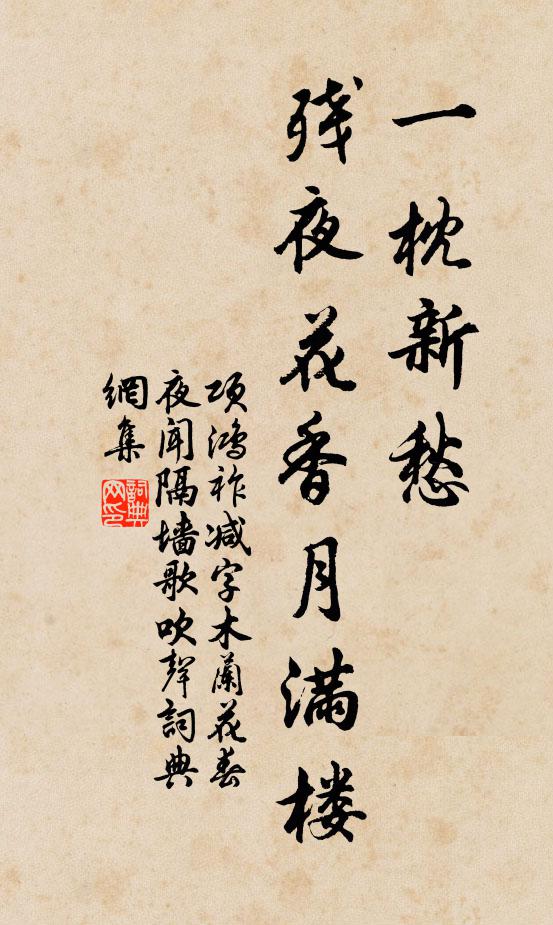 一枕新愁
残夜花香月满楼
项鸿祚减字木蘭花春
夜闻隔墙歌吹聲詞典
網集
詞典網印